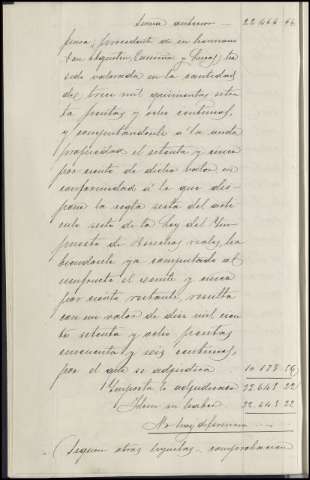 Suma anterior 22.464 66
finca, procedente de su hermano
Don Agustin y Lucas, ha
sido valorada en la cantidad
de trece mil quinientas seten
ta pesetas y ocho centimos,
y computandole á la nuda
propiedad el setenta y cinco
por ciento de dicho valor en
conformidad á lo que dis-
pone la regla sesta del arti
culo sesto de la Ley del Im-
puesto de derechos reales, ha
biendosele ya computado al
usufructo el veinte y cinco
por ciento restante, resulta
con un valor de diez mil cien
to setenta y ocho pesetas
cincuenta y seis centimos,
por el que se adjudica 10.178 56
Importa lo adjudicado 22.643 22
Idem su haber 22.643 22
No hay diferencia
(Siguen otras hijuelas - comprobacion